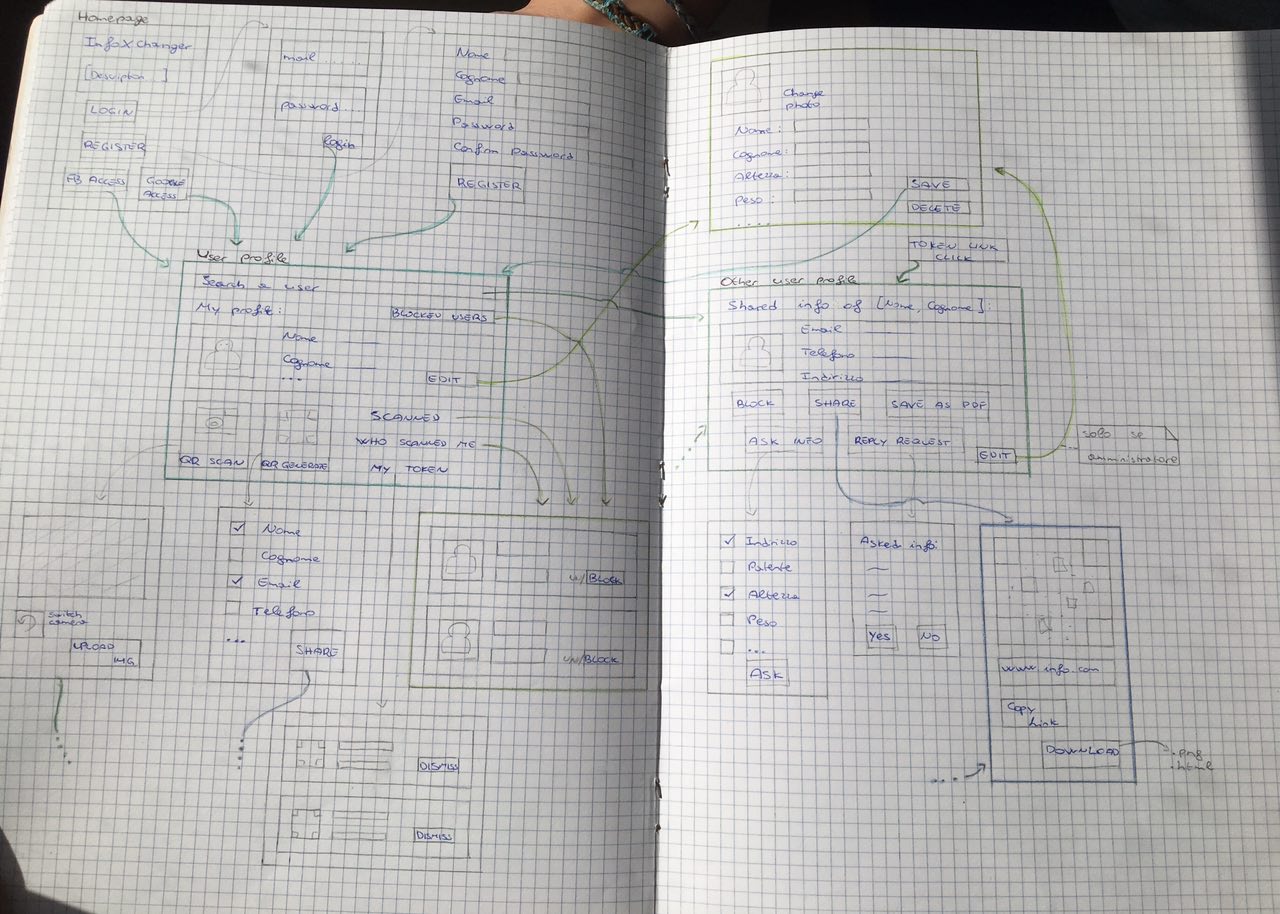 Homepage
InfoXchanger
[Description ...]
LOGIN
REGISTER
FB ACCESS
GOOGLE
ACCESS
mail ......
password ...
login
Nome
Cognome
Email
Password
Confirm Password
REGISTER
User profile
Search a user
My profile:
BLOCKED USERS
Nome
Cognome
...
EDIT
SCANNED
WHO SCANNED ME
MY TOKEN
QR SCAN
QR GENERATE
switch
camera
UPLOAD
IMG
✓ Nome
Cognome
✓ Email
Telefono
...
SHARE
UN/BLOCK
UN/BLOCK
DISMISS
DISMISS
Change
photo
Nome:
Cognome:
Altezza:
Peso:
....
SAVE
DELETE
TOKEN LINK
CLICK
Other user profile
Shared info of [Nome, Cognome]:
Email
Telefono
Indirizzo
BLOCK
SHARE
SAVE AS PDF
ASK INFO
REPLY REQUEST
EDIT
solo se
amministratore
✓ Indirizzo
Patente
✓ Altezza
Peso
...
ASK
Asked info:
Yes
No
www.info.com
Copy
Link
DOWNLOAD
.png
.html